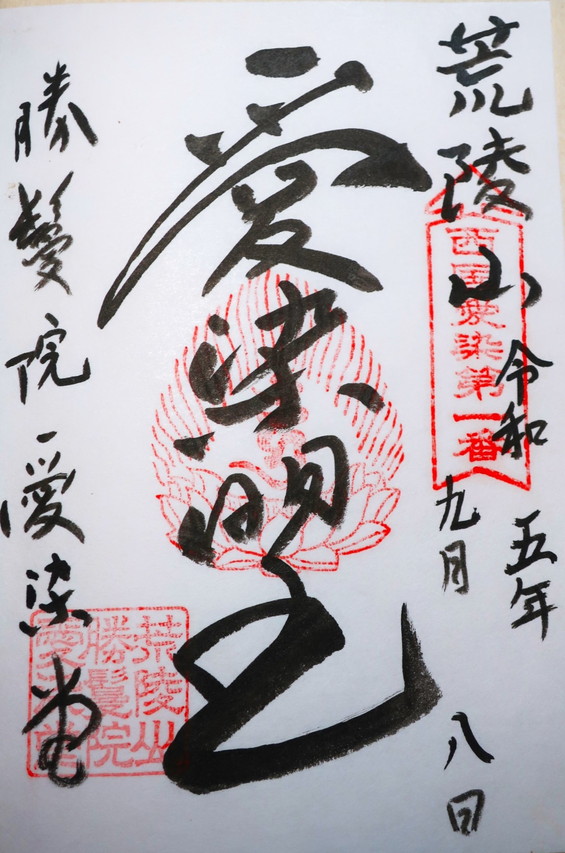 荒陵山
西国愛染第一番
令和五年
九月八日
愛染明王
勝鬘院愛染堂
荒陵山
勝鬘院
愛染堂